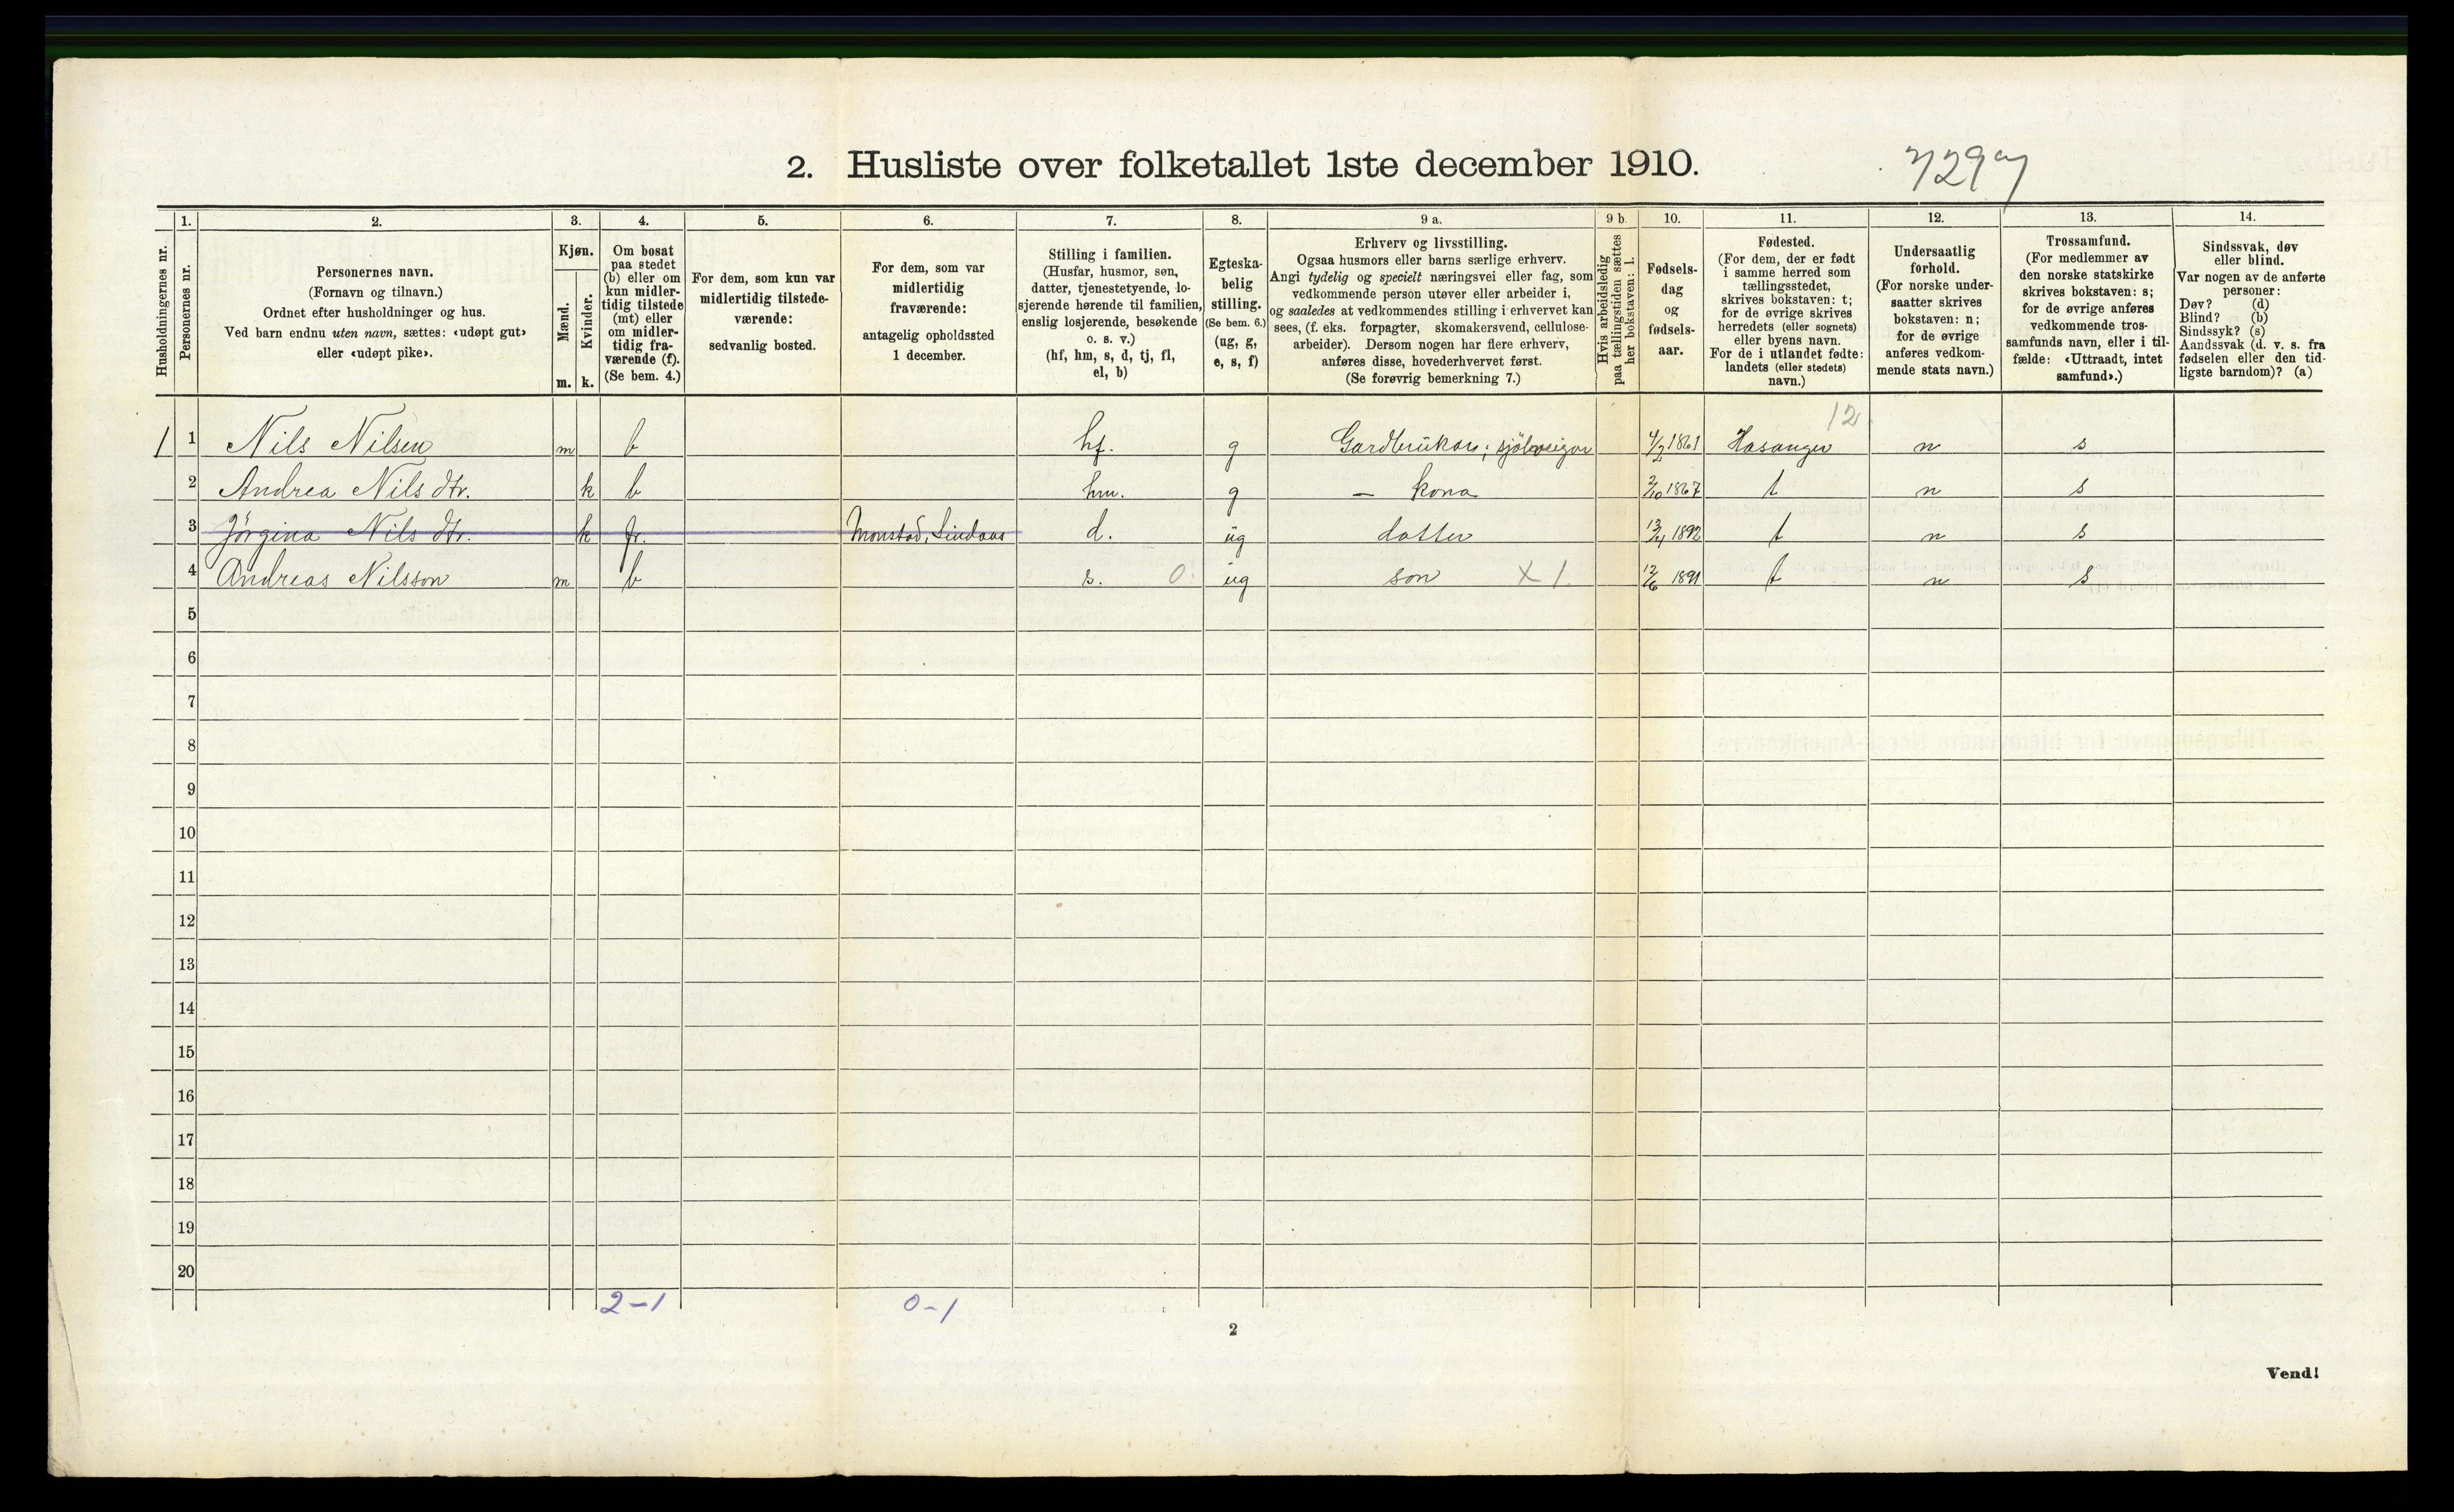 2. Husliste over folketallet 1ste december 1910.
1. 2. 3. 4. 5. 6. 7. 8. 9 a. 9 b. 10. 11. 12. 13. 14.
Husholdningernes nr.
Personernes nr.
Personernes navn.
(Fornavn og tilnavn.)
Ordnet efter husholdninger og hus.
Ved barn endnu uten navn, sættes: «udøpt gut»
eller «udøpt pike».
Kjøn.
Mænd.
Kvinder.
m. k.
Om bosat
paa stedet
(b) eller om
kun midler-
tidig tilstede
(mt) eller
om midler-
tidig fra-
værende (f).
(Se bem. 4.)
For dem, som kun var
midlertidig tilstede-
værende:
sedvanlig bosted.
For dem, som var
midlertidig
fraværende:
antagelig opholdssted
1 december.
Stilling i familien.
(Husfar, husmor, søn,
datter, tjenestetyende, lo-
sjerende hørende til familien,
enslig losjerende, besøkende
o. s. v.)
(hf, hm, s, d, tj, fl,
el, b)
Egteska-
belig
stilling.
(Se bem. 6.)
(ug, g,
e, s, f)
Erhverv og livsstilling.
Ogsaa husmors eller barns særlige erhverv.
Angi tydelig og specielt næringsvei eller fag, som
vedkommende person utøver eller arbeider i,
og saaledes at vedkommendes stilling i erhvervet kan
sees, (f. eks. forpagter, skomakersvend, cellulose-
arbeider). Dersom nogen har flere erhverv,
anføres disse, hovederhvervet først.
(Se forøvrig bemerkning 7.)
Hvis arbeidsledig
paa tællingstiden sættes
her bokstaven: l.
Fødsels-
dag
og
fødsels-
aar.
Fødested.
(For dem, der er født
i samme herred som
tællingsstedet,
skrives bokstaven: t;
for de øvrige skrives
herredets (eller sognets)
eller byens navn.
For de i utlandet fødte:
landets (eller stedets)
navn.)
Undersaatlig
forhold.
(For norske under-
saatter skrives
bokstaven: n;
for de øvrige
anføres vedkom-
mende stats navn.)
Trossamfund.
(For medlemmer av
den norske statskirke
skrives bokstaven: s;
for de øvrige anføres
vedkommende tros-
samfunds navn, eller i til-
fælde: «Uttraadt, intet
samfund».)
Sindssvak, døv
eller blind.
Var nogen av de anførte
personer:
Døv? (d)
Blind? (b)
Sindssyk? (s)
Aandssvak (d. v. s. fra
fødselen eller den tid-
ligste barndom)? (a)
12
1 1 Nils Nilsen m b hf. g Gardbrukar; sjölveigar 4/2 1861 Hasanger n s
2 Andrea Nils dtr. k b hm. g — kona 2/10 1867 t n s
3 Jörgina Nils dtr. k fr. Monstad, Lindaas d. ug dotter 13/4 1892 t n s
4 Andreas Nilsson m b s. 0 ug son X 1. 12/6 1891 t n s
5
6
7
8
9
10
11
12
13
14
15
16
17
18
19
20
2-1 0-1
2
Vend!